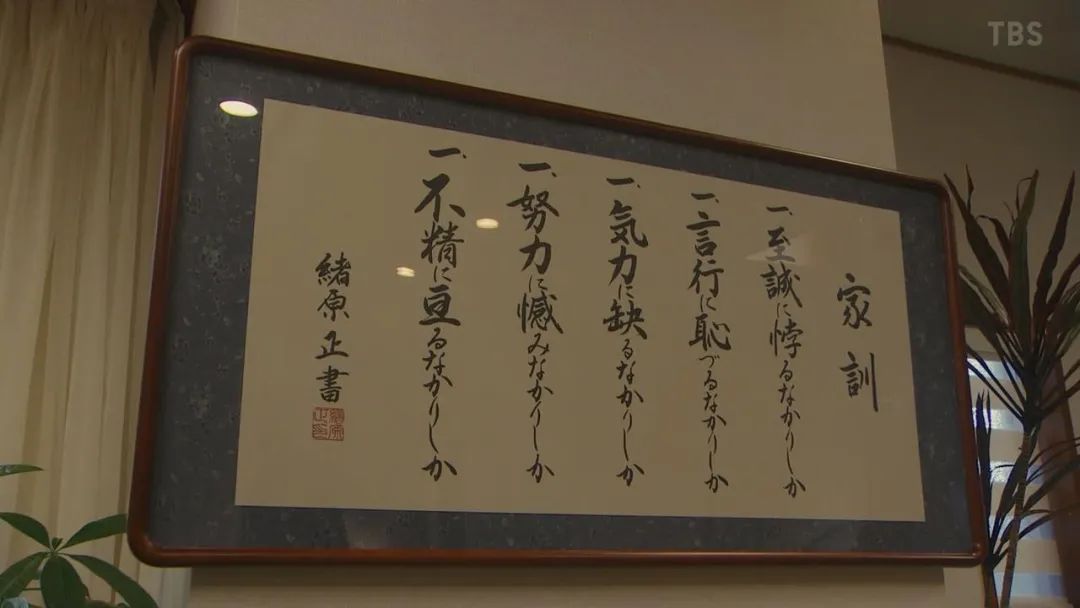 家訓
一、至誠に悖るなかりしか
一、言行に恥づるなかりしか
一、気力に缺るなかりしか
一、努力に憾みなかりしか
一、不精に亘るなかりしか
緒原正書
TBS